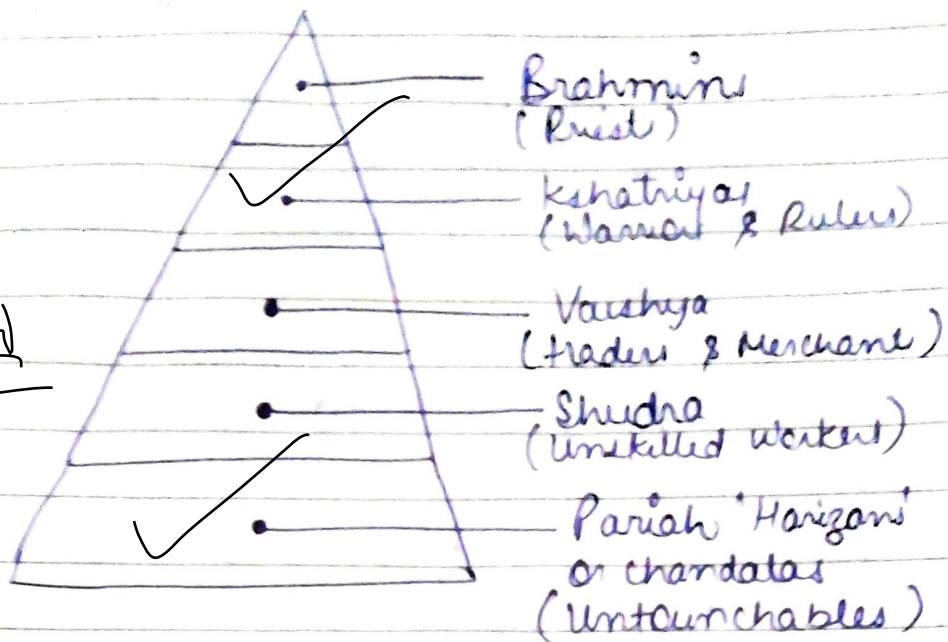 Brahmins
(Priest)
Kshatriyas
(Warriors & Rulers)
Vaishya
(traders & Merchant)
Shudra
(Unskilled Workers)
Pariah 'Harizans'
or Chandalas
(Untounchables)